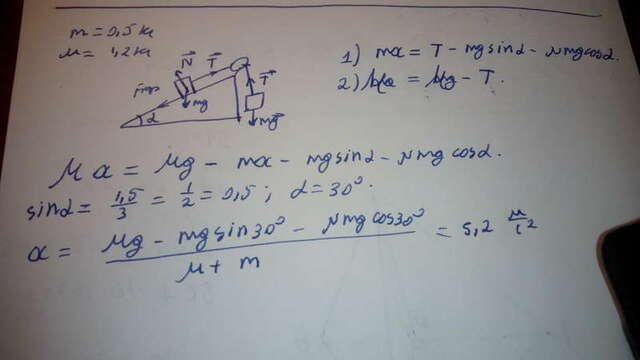 m = 0,5 кг
M = 1,2 кг
N T
Fтр mg α T Mg
1) ma = T - mg sinα - μmg cosα.
2) Ma = Mg - T.
Ma = Mg - ma - mg sinα - μmg cosα.
sinα = 1,5/3 = 1/2 = 0,5; α = 30°.
a = (Mg - mg sin30° - μmg cos30°)/(M + m) = 5,2 м/с²